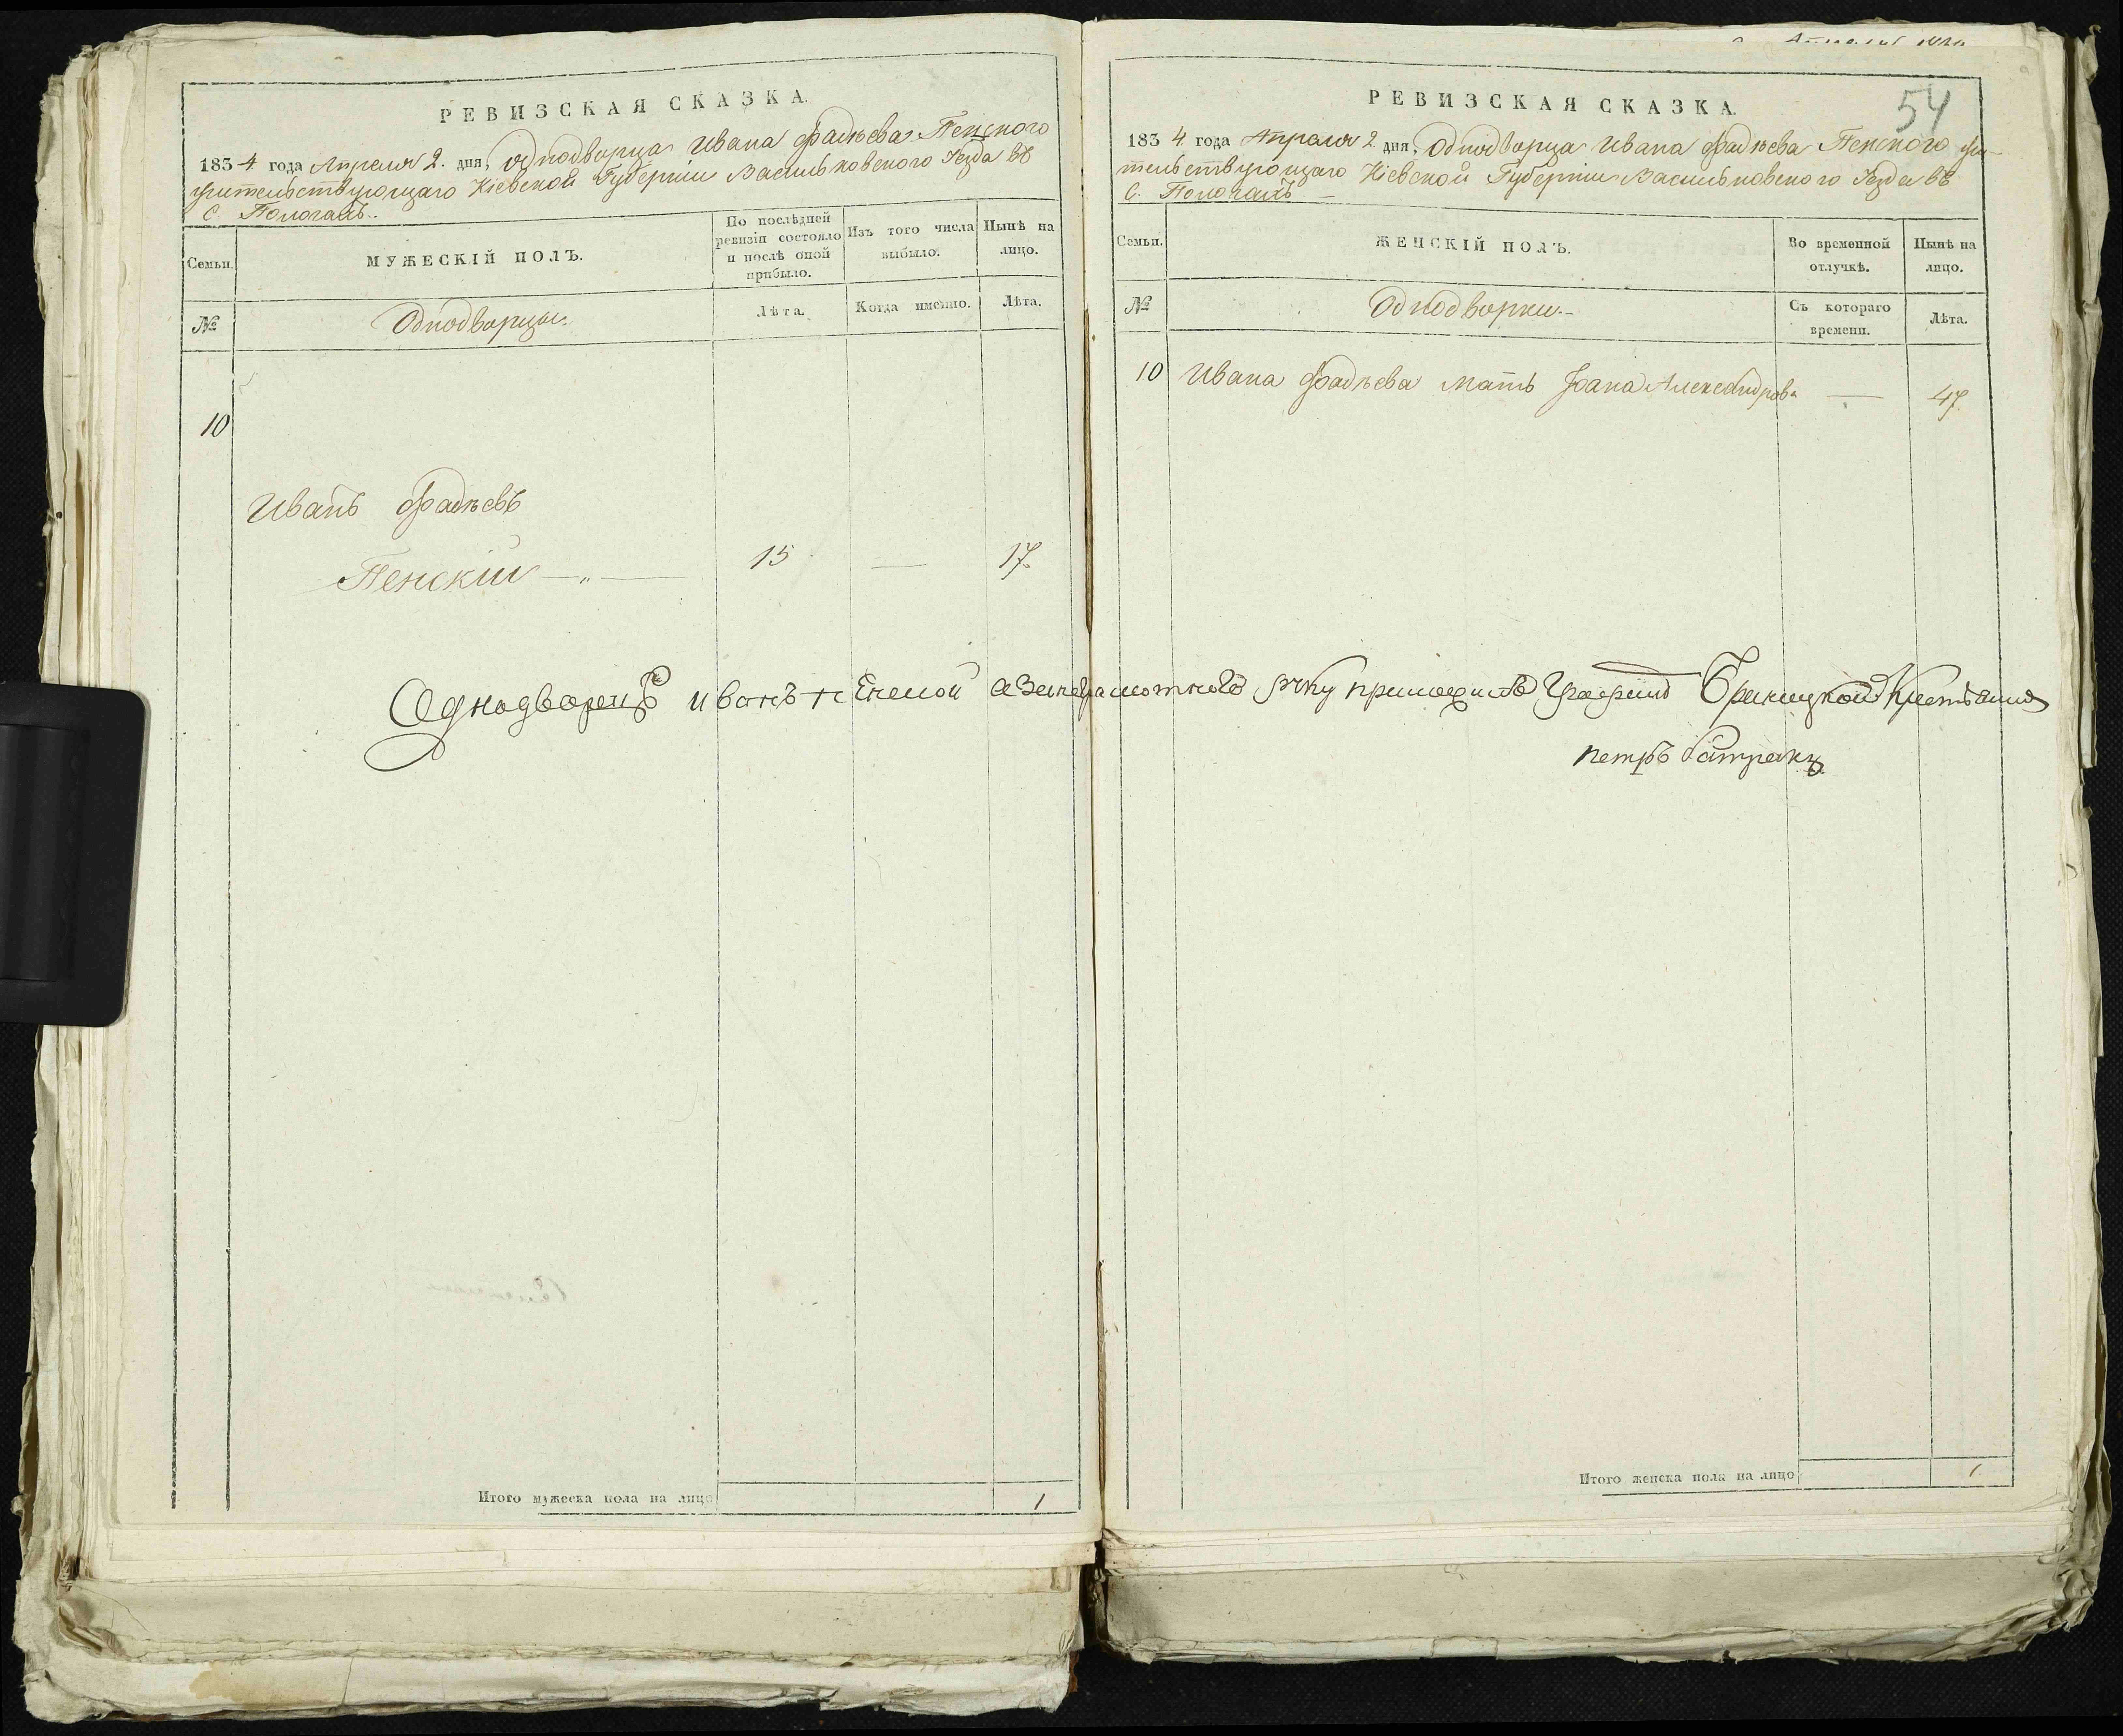 РЕВИЗСКАЯ СКАЗКА.
1834 года Апреля 2. дня, Однодворца Ивана Фадѣева Пенского
жительствующаго Кіевской Губерніи Васильковского Уезда въ
С. Пологахъ.
Семьи.
МУЖЕСКІЙ ПОЛЪ.
По послѣдней
ревизіи состояло
и послѣ оной
прибыло.
Изъ того числа
выбыло.
Нынѣ на
лицо.
№
Однодворцы.
Лѣта.
Когда именно.
Лѣта.
10
Иванъ Фадѣевъ
Пенскій — „ — 15 — 17.
Однодворецъ иванъ
Итого мужеска пола на лицо 1
54
РЕВИЗСКАЯ СКАЗКА.
1834 года Апреля 2 дня, Однодворца Ивана Фадѣева Пенского жи-
тельствующаго Кіевской Губерніи Васильковского Уезда въ
С. Пологахъ. —
Семьи.
ЖЕНСКІЙ ПОЛЪ.
Во временной
отлучкѣ.
Нынѣ на
лицо.
№
Однодворки. —
Съ котораго
времени.
Лѣта.
10 Ивана Фадѣева мать Александрова — 47.
неграмотного руку приложилъ Браницкой
петръ
Итого женска пола на лицо 1.